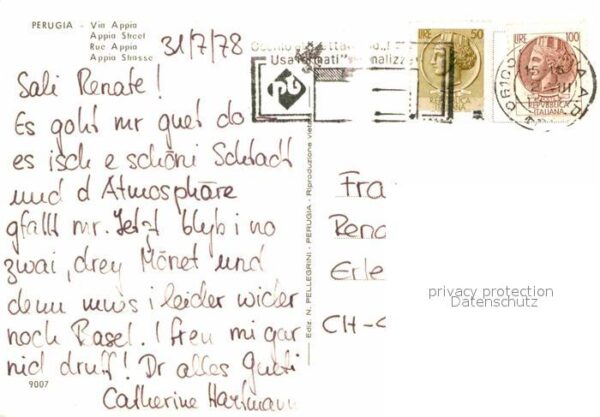 PERUGIA - Via Appia
Appia Street
Rue Appia
Appia Strasse
31/7/78
Sali Renate!
Es goht mr guet do
es isch e schöni Schtadt
und d Atmosphäre
gfallt mr. Jetzt blyb i no
zwai, drey Mönet und
denn muss i leider wider
noch Basel. I freu mi gar
nid druff! Dr alles Gueti
Catherine Hartmann
9007
Ediz. N. PELLEGRINI - PERUGIA - Riproduzione
LIRE 50
REPUBBLICA
ITALIANA
LIRE 100
REPUBBLICA
ITALIANA
06100
Fra
Rena
Erle
CH-
privacy protection
Datenschutz